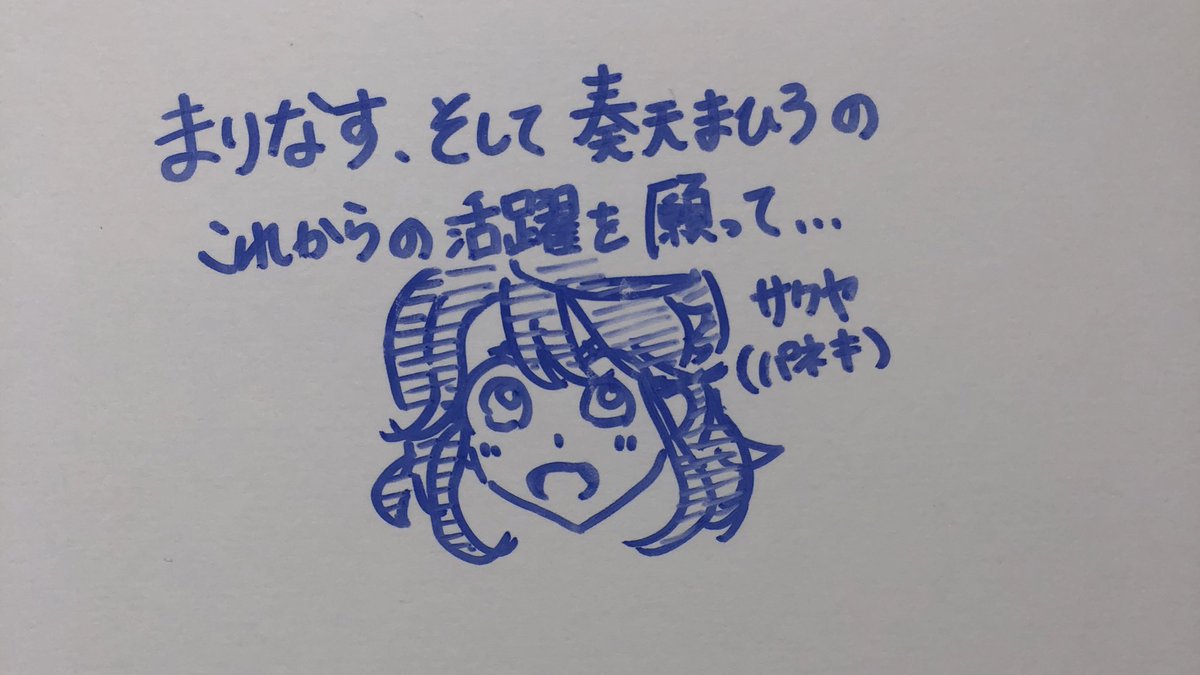 まりなす、そして奏天まひろの
これからの活躍を願って…
サクヤ
(パネキ)